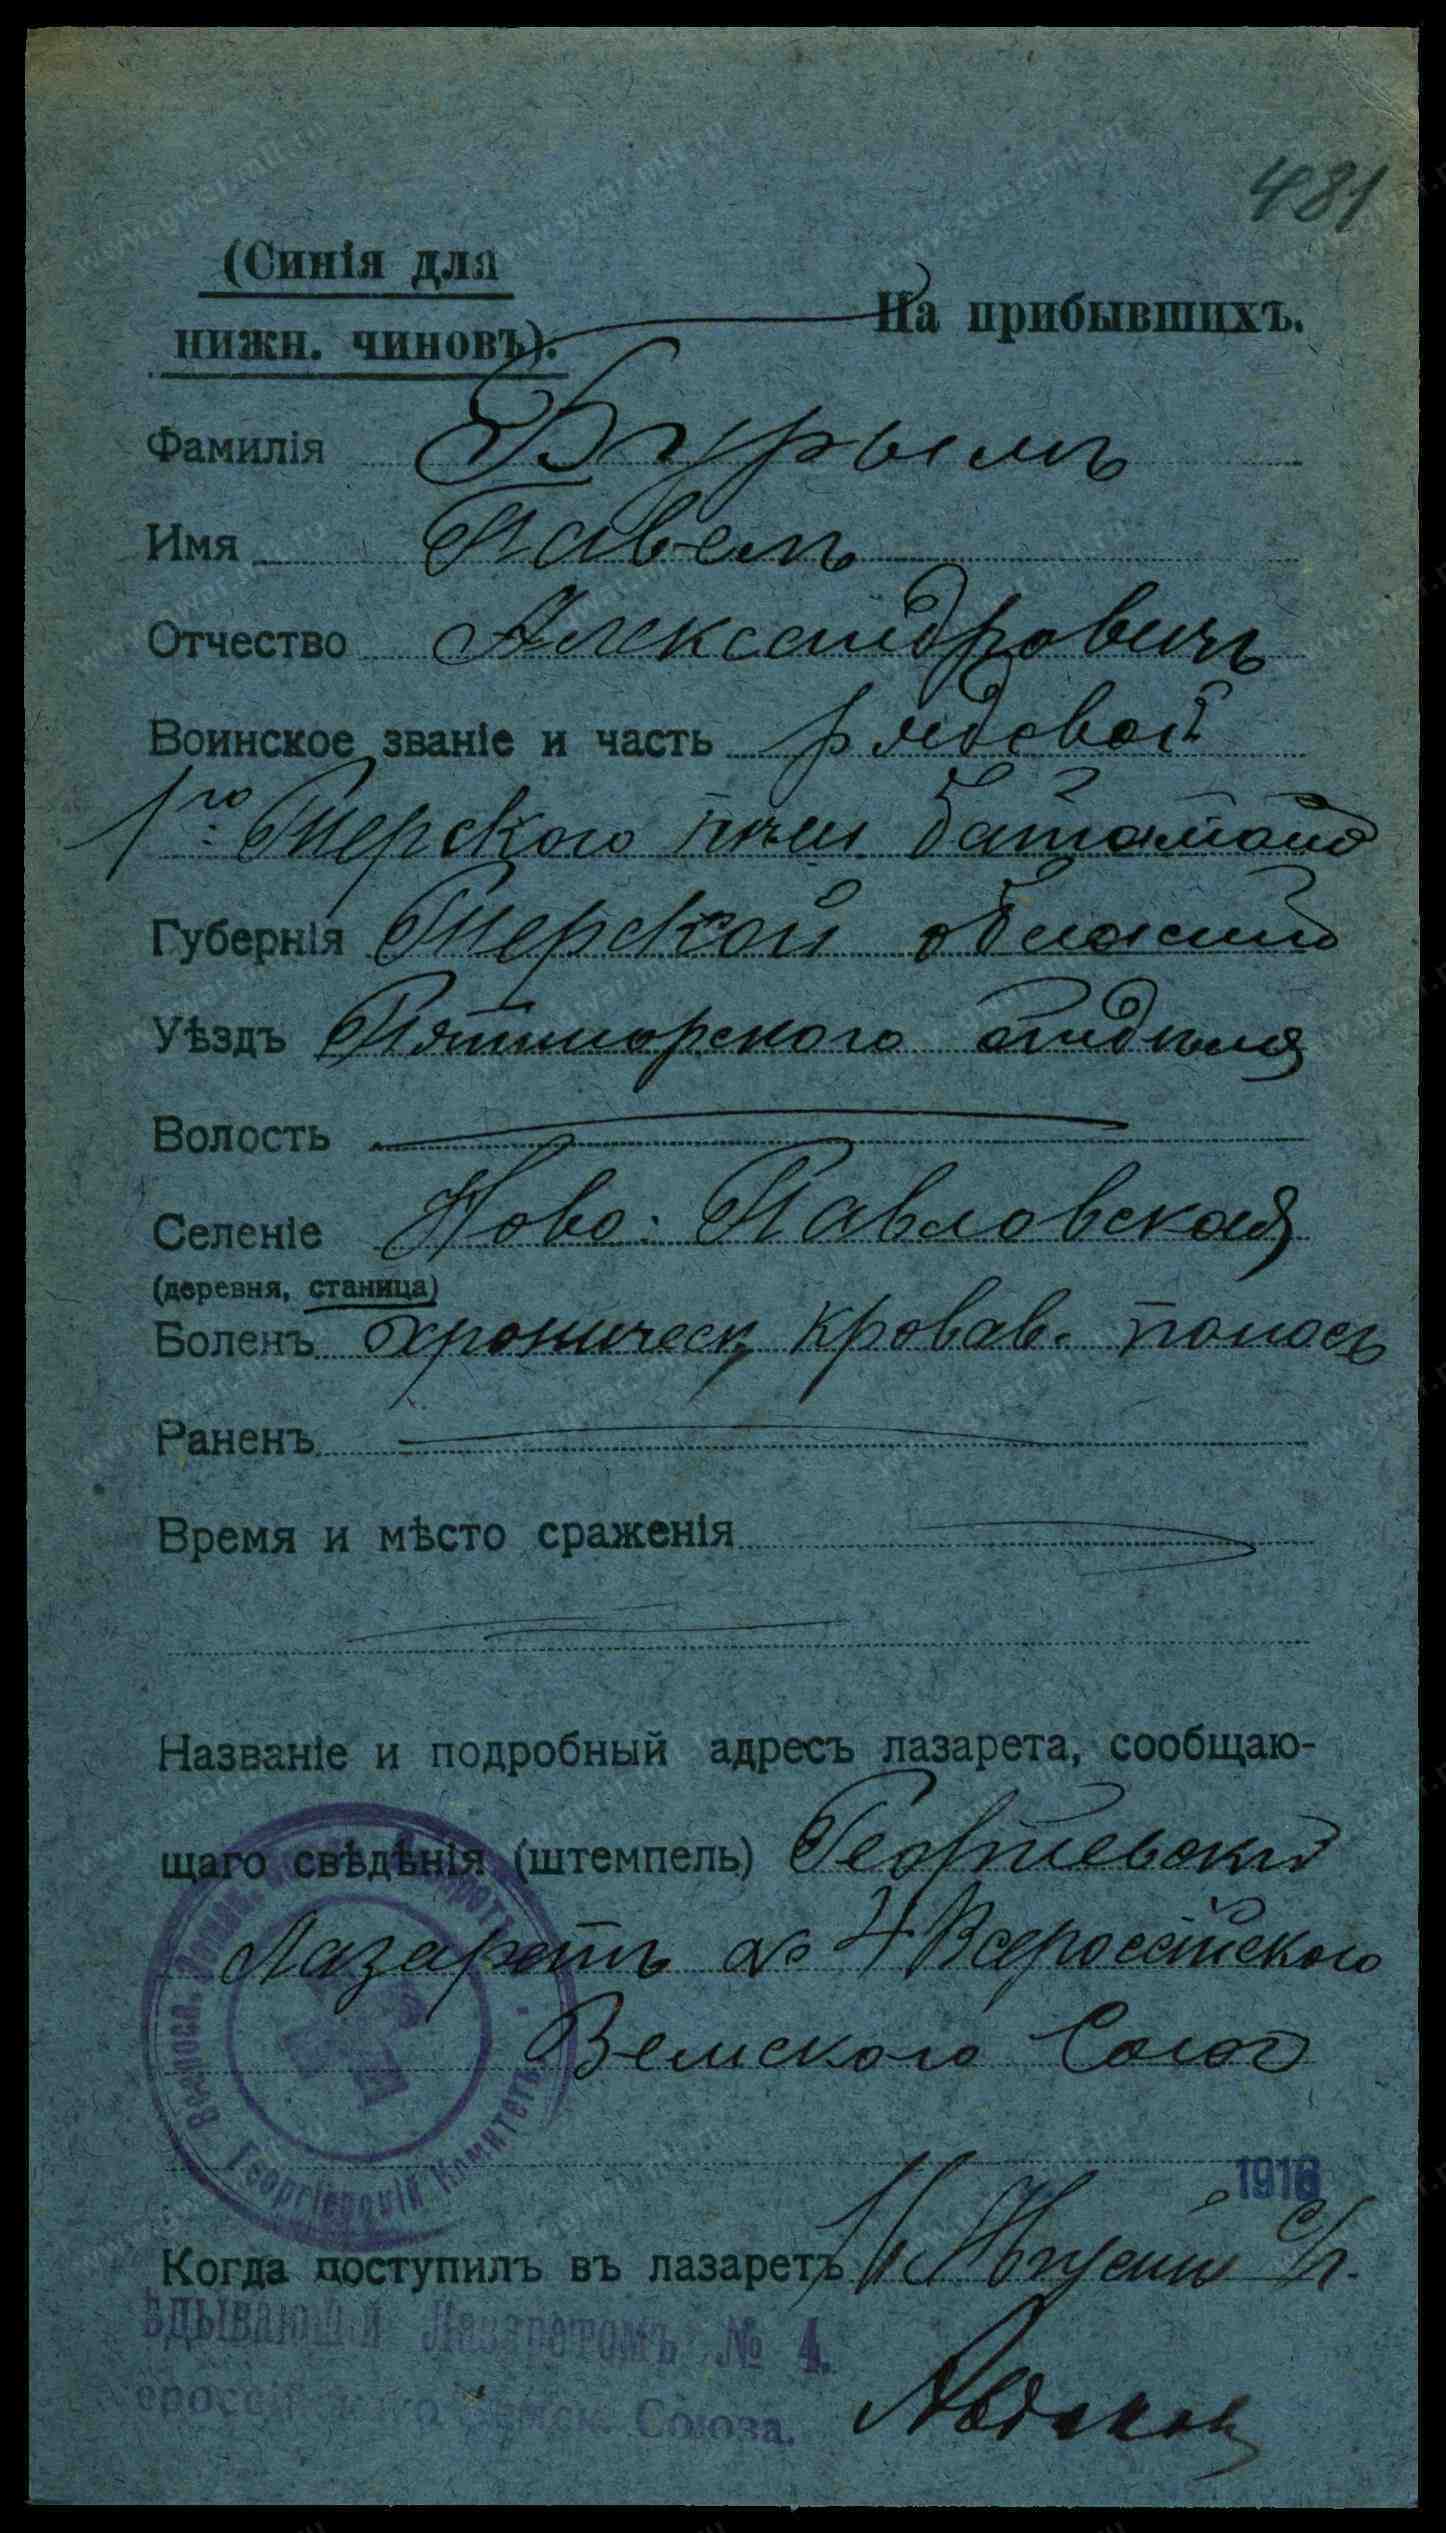 481
(Синія для
нижн. чиновъ).
На прибывшихъ.
Фамилія Бурымъ
Имя Павелъ
Отчество Александровичъ
Воинское званіе и часть рядовой
1го Терскаго плас. баталіона
Губернія Терской области
Уѣздъ Пятигорскаго отдѣла
Волость
Селеніе Ново-Павловская
(деревня, станица)
Боленъ хроническ. кровав. поносъ
Раненъ
Время и мѣсто сраженія
Названіе и подробный адресъ лазарета, сообщаю-
щаго свѣдѣнія (штемпель) Георгіевскій
Лазаретъ № 4 Всероссійскаго
Земскаго Союза
Георгіевскій Комитетъ
1916
Когда поступилъ въ лазаретъ 11 Августа с/г.
Лазаретомъ № 4.
Союза.